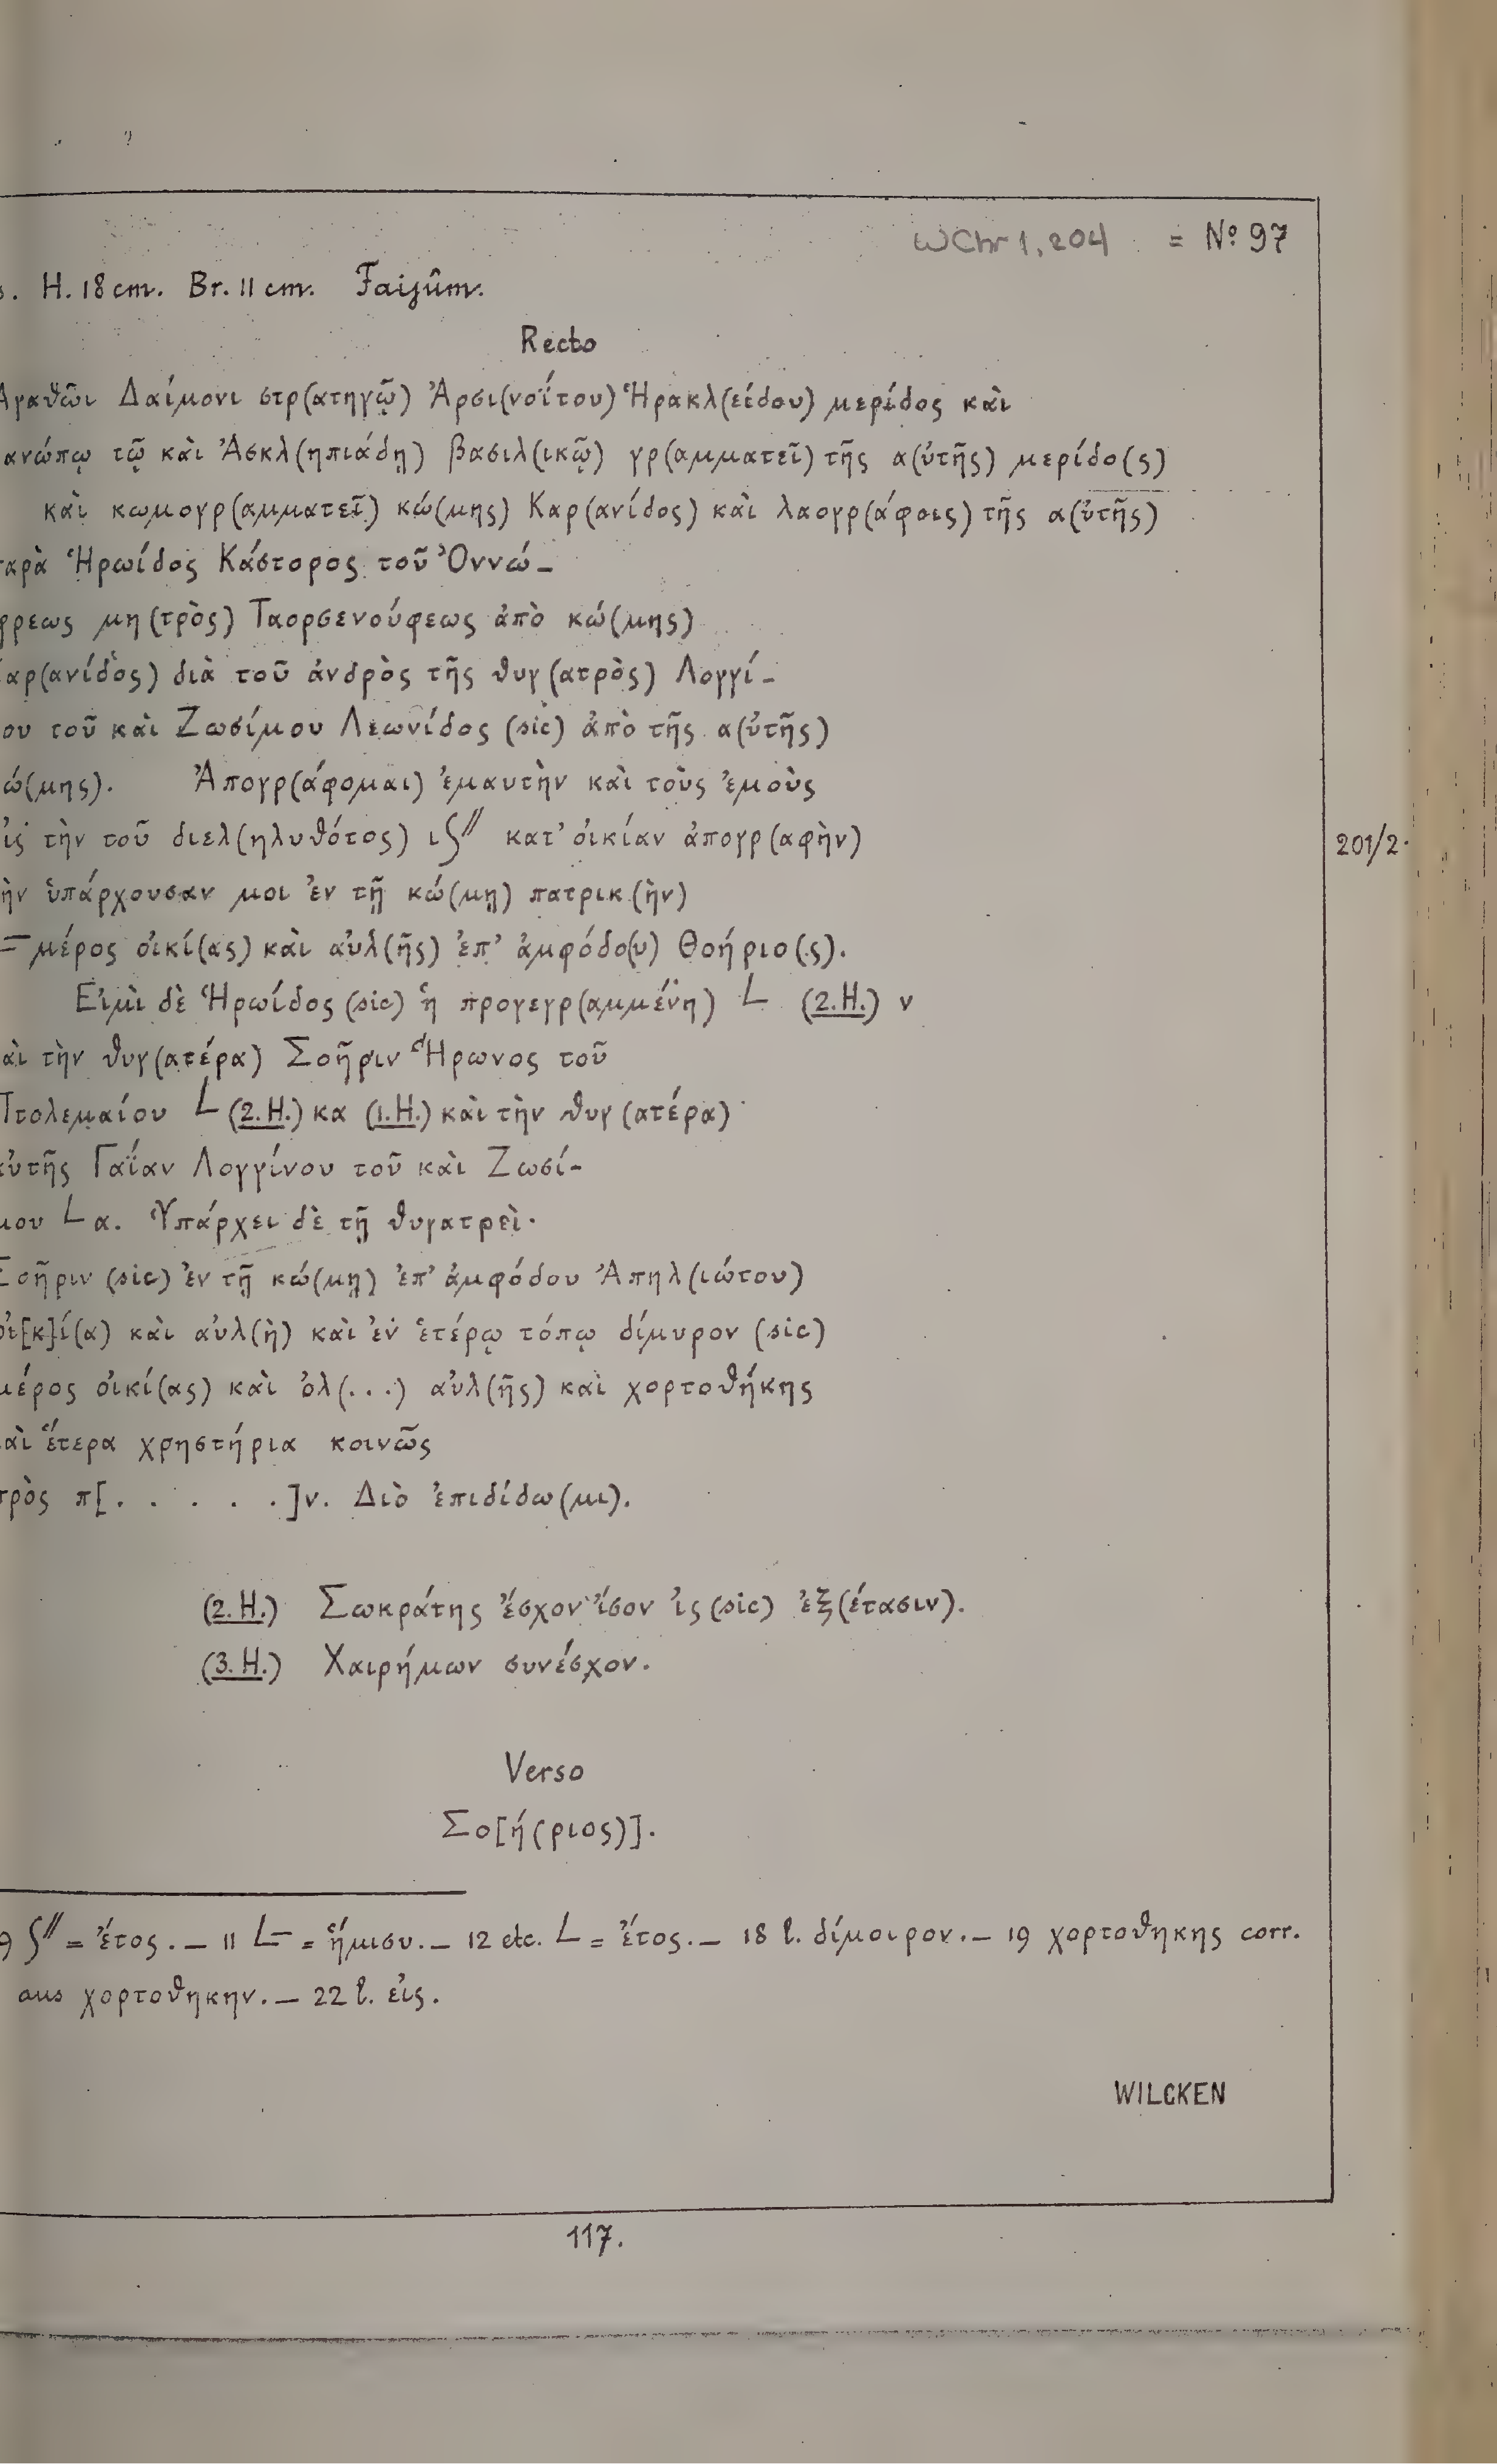 WChr 1, 204 = Nº 97
. H. 18 cm. Br. 11 cm. Faijûm.
Recto
Ἀγαθῶι Δαίμονι στρ(ατηγῷ) Ἀρσι(νοΐτου) Ἡρακλ(είδου) μερίδος καὶ
ανώπῳ τῷ καὶ Ἀσκλ(ηπιάδῃ) βασιλ(ικῷ) γρ(αμματεῖ) τῆς α(ὐτῆς) μερίδο(ς)
καὶ κωμογρ(αμματεῖ) κώ(μης) Καρ(ανίδος) καὶ λαογρ(άφοις) τῆς α(ὐτῆς)
αρὰ Ἡρωίδος Κάστορος τοῦ Ὀννώ–
φρεως μη(τρὸς) Ταορσενούφεως ἀπὸ κώ(μης)
αρ(ανίδος) διὰ τοῦ ἀνδρὸς τῆς θυγ(ατρὸς) Λογγί–
ου τοῦ καὶ Ζωσίμου Λεωνίδος (sic) ἀπὸ τῆς α(ὐτῆς)
ώ(μης). Ἀπογρ(άφομαι) ἐμαυτὴν καὶ τοὺς ἐμοὺς
ἰς τὴν τοῦ διελ(ηλυθότος) ιϚ″ κατ’ οἰκίαν ἀπογρ(αφὴν)
201/2.
ὴν ὑπάρχουσαν μοι ἐν τῇ κώ(μῃ) πατρικ(ὴν)
μέρος οἰκί(ας) καὶ αὐλ(ῆς) ἐπ’ ἀμφόδο(υ) Θοήριο(ς).
Εἰμὶ δὲ Ἡρωίδος (sic) ἡ προγεγρ(αμμένη) L (2. H.) ν
αὶ τὴν θυγ(ατέρα) Σοῆριν Ἥρωνος τοῦ
Πτολεμαίου L (2. H.) κα (1. H.) καὶ τὴν θυγ(ατέρα)
αὐτῆς Γαΐαν Λογγίνου τοῦ καὶ Ζωσί–
μου L α. Ὑπάρχει δὲ τῇ θυγατρεὶ
Σοῆριν (sic) ἐν τῇ κώ(μῃ) ἐπ’ ἀμφόδου Ἀπηλ(ιώτου)
οἰ[κ]ί(α) καὶ αὐλ(ὴ) καὶ ἐν ἑτέρῳ τόπῳ δίμυρον (sic)
μέρος οἰκί(ας) καὶ ὁλ(...) αὐλ(ῆς) καὶ χορτοθήκης
αὶ ἕτερα χρηστήρια κοινῶς
πρὸς π[.....]ν. Διὸ ἐπιδίδω(μι).
(2. H.) Σωκράτης ἔσχον ἴσον ἰς (sic) ἐξ(έτασιν).
(3. H.) Χαιρήμων συνέσχον.
Verso
Σο[ή(ριος)].
9 Ϛ″ = ἔτος. — 11 L– = ἥμισυ. — 12 etc. L = ἔτος. — 18 l. δίμοιρον. — 19 χορτοθηκης corr.
aus χορτοθηκην. — 22 l. εἰς.
WILCKEN
117.